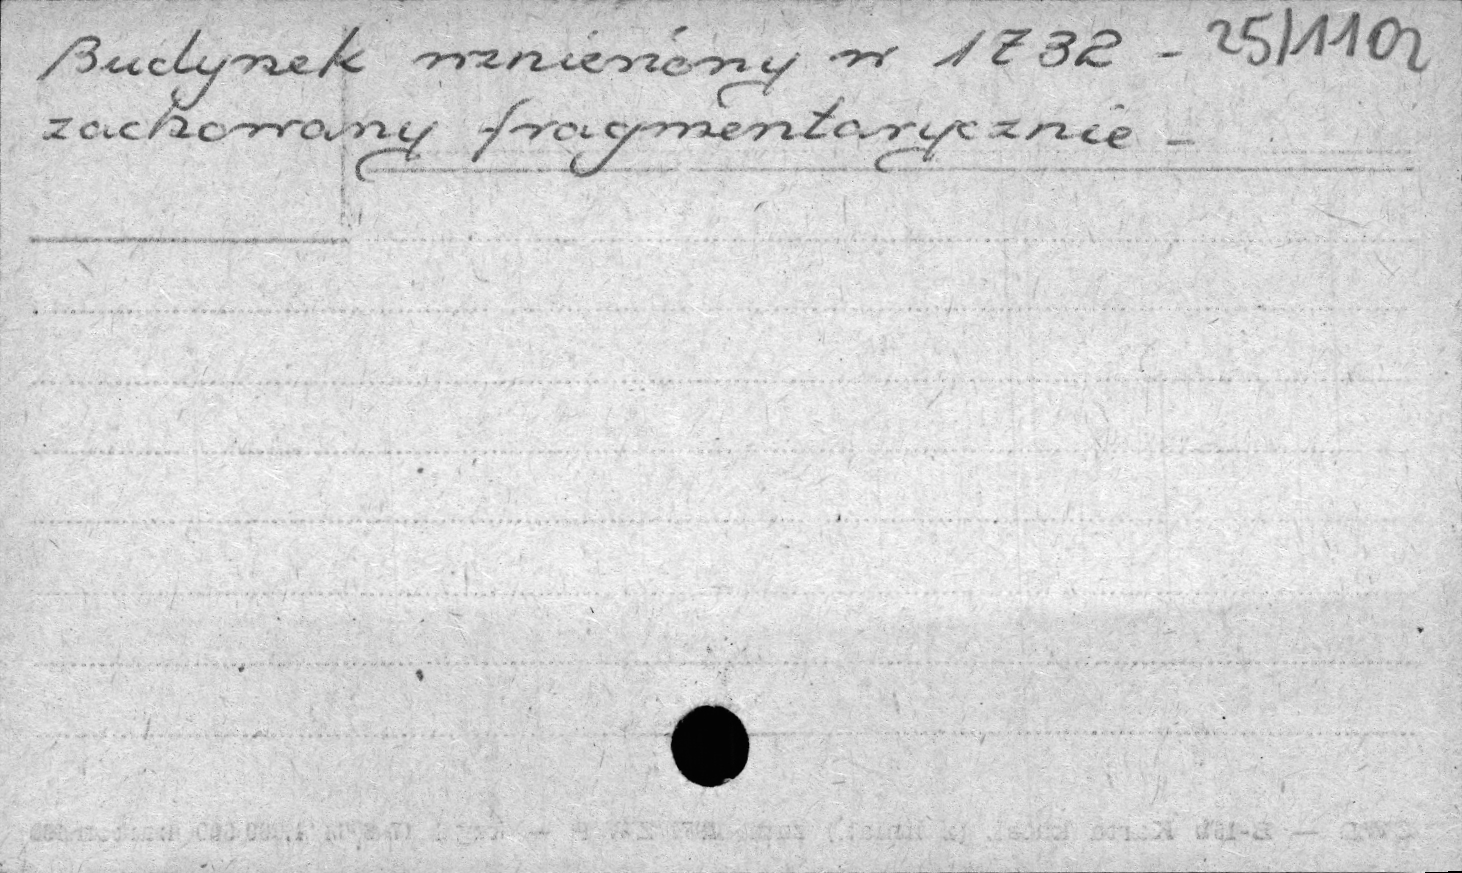 Budynek wzniesiony w 1732 - 25/1102
zachowany fragmentarycznie -